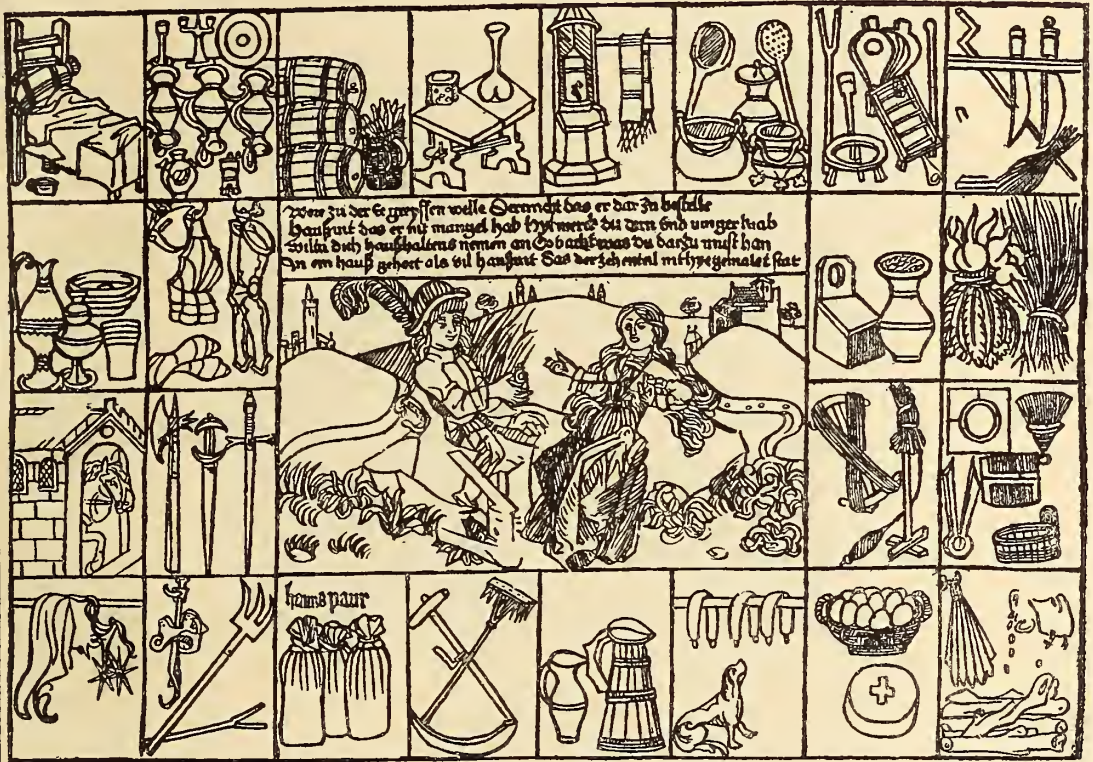 Were zu der Ee greyffen welle Der das er dar In bestelle
Haußrat das er nit mangel hab hye merck du vnd
wiltu dich haußhaltens nemen an So was du darzu must han
In ein hauß gehort als vil haußrat Das der zehental nit hye gemalet stat
hanns paur